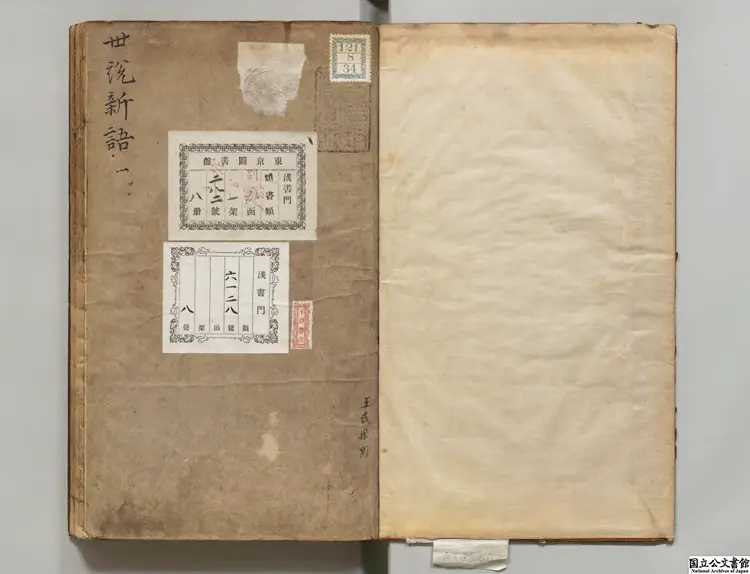 世說新語 一
121
8
34
東京圖書館
漢書門
類書類
一
函
架
二八二
號
八
冊
漢書門
類
六一二八
號
函
架
八
冊
国立公文書館
National Archives of Japan